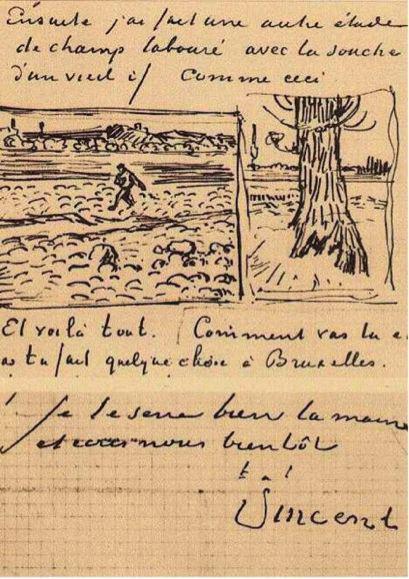 Ensuite j'ai fait une autre étude
de champ labouré avec la souche
d'un vieil if Comme ceci
Et voilà tout. Comment vas tu
as tu fait quelque chose à Bruxelles.
je te serre bien la main
et bientôt
t. à t.
Vincent